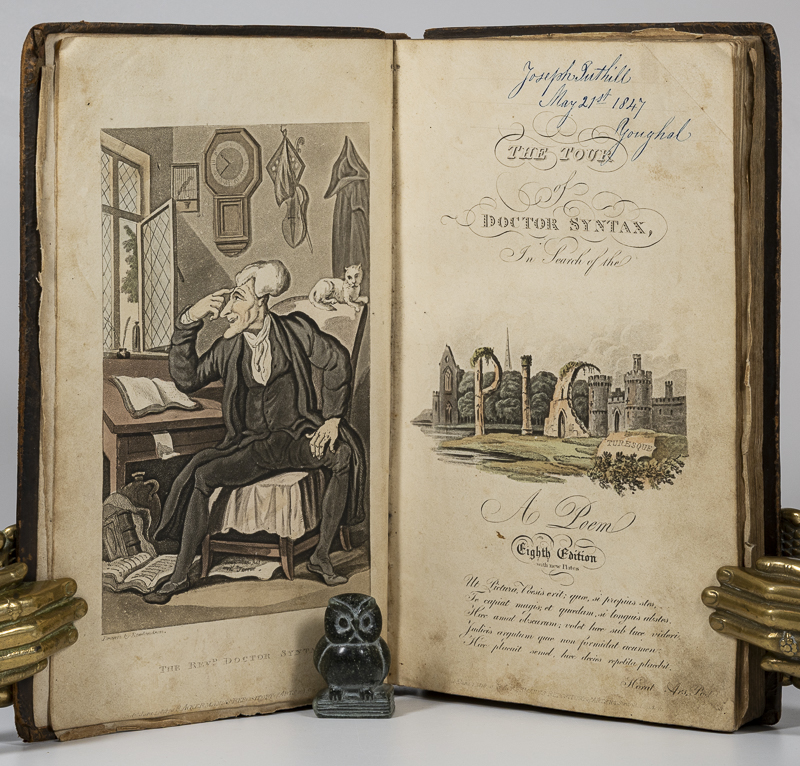 THE REVD. DOCTOR SYNTAX
Joseph Tuthill
May 21st 1847
Youghal
THE TOUR
of
DOCTOR SYNTAX,
In Search of the
PIC
TURESQUE
A Poem
Eighth Edition
with new Plates
Ut Pictura, Poesis erit; quæ, si propius stes,
Te capiat magis; et quædam, si longius abstes.
Hæc amat obscurum; volet hæc sub luce videri,
Judicis argutum quæ non formidat acumen:
Hæc placuit semel, hæc decies repetita placebit.
Horat